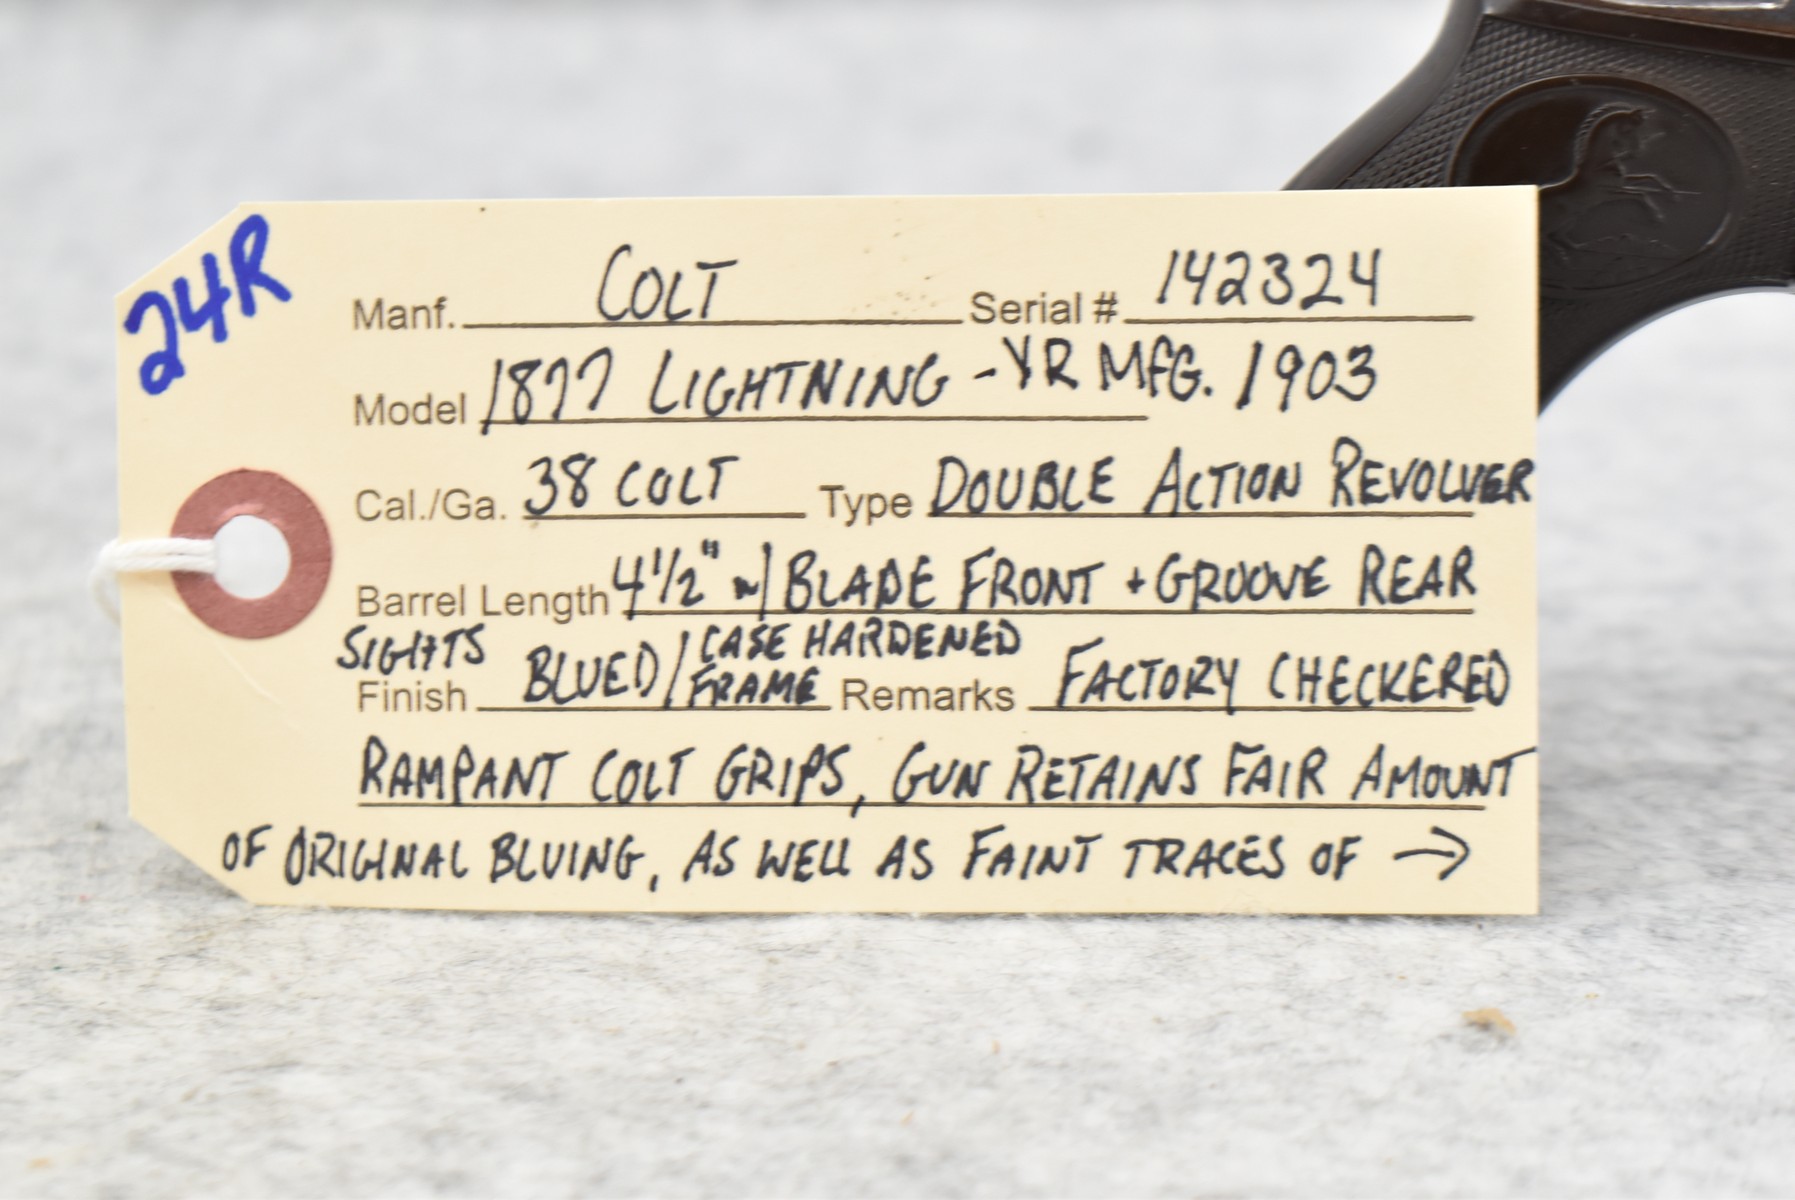 24R
Manf. COLT Serial # 142324
Model 1877 LIGHTNING - YR MFG. 1903
Cal./Ga. 38 COLT Type DOUBLE ACTION REVOLVER
Barrel Length 4 1/2" w/ BLADE FRONT + GROOVE REAR
SIGHTS
Finish BLUED / CASE HARDENED FRAME Remarks FACTORY CHECKERED
RAMPANT COLT GRIPS, GUN RETAINS FAIR AMOUNT
OF ORIGINAL BLUING, AS WELL AS FAINT TRACES OF →